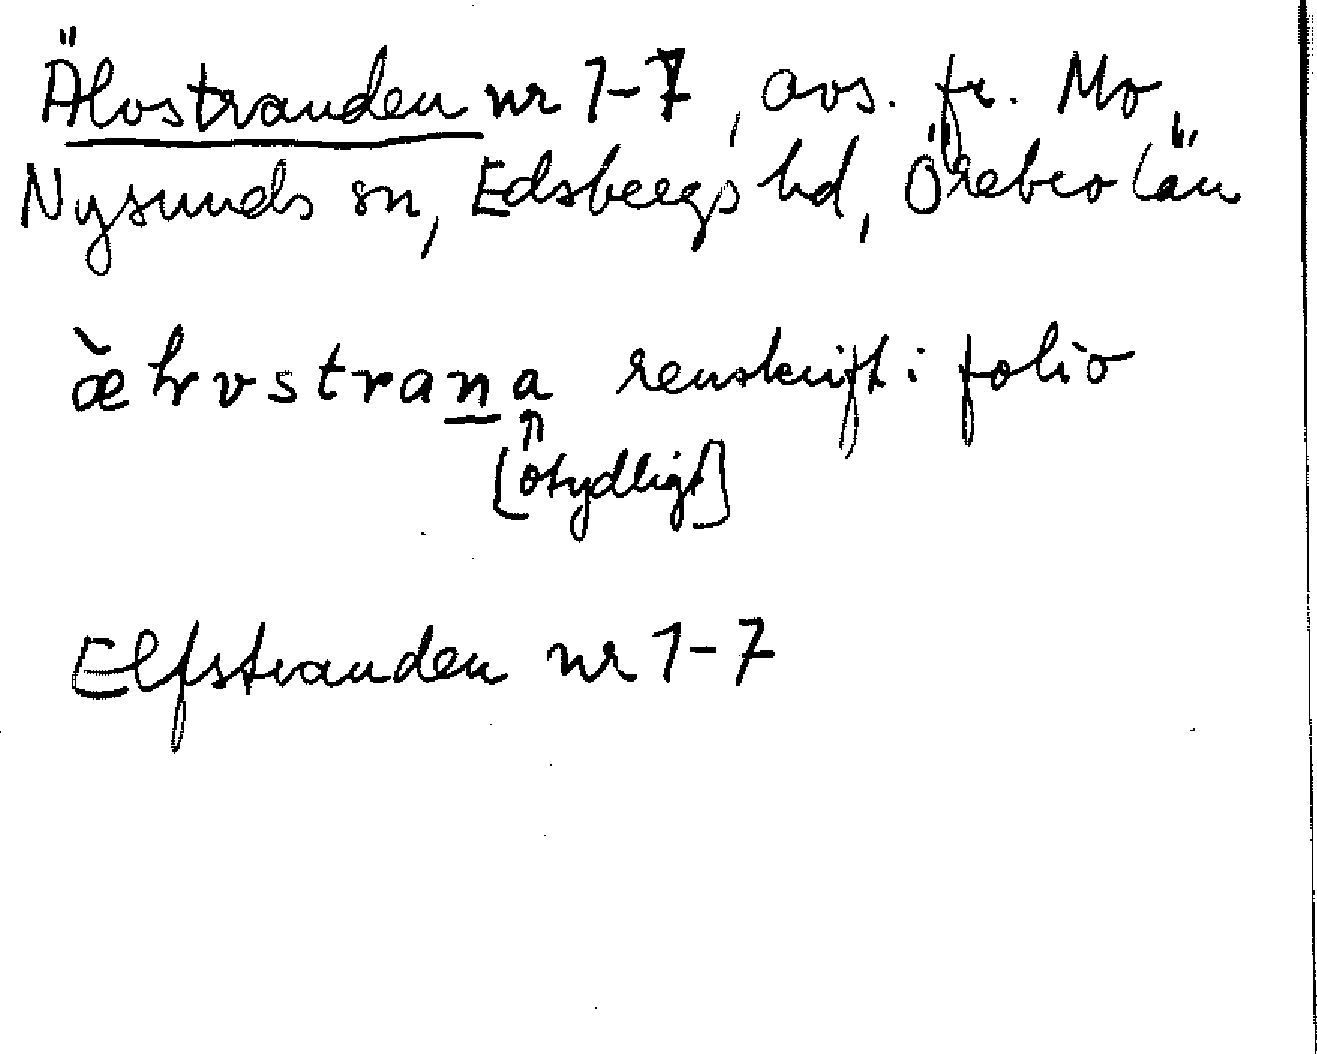 Älvstranden nr 1-7, avs. fr. Mo,
Nysunds sn, Edsbergs hd, Örebro län
renskrift i folio
[otydligt]
Elfstranden nr 1-7